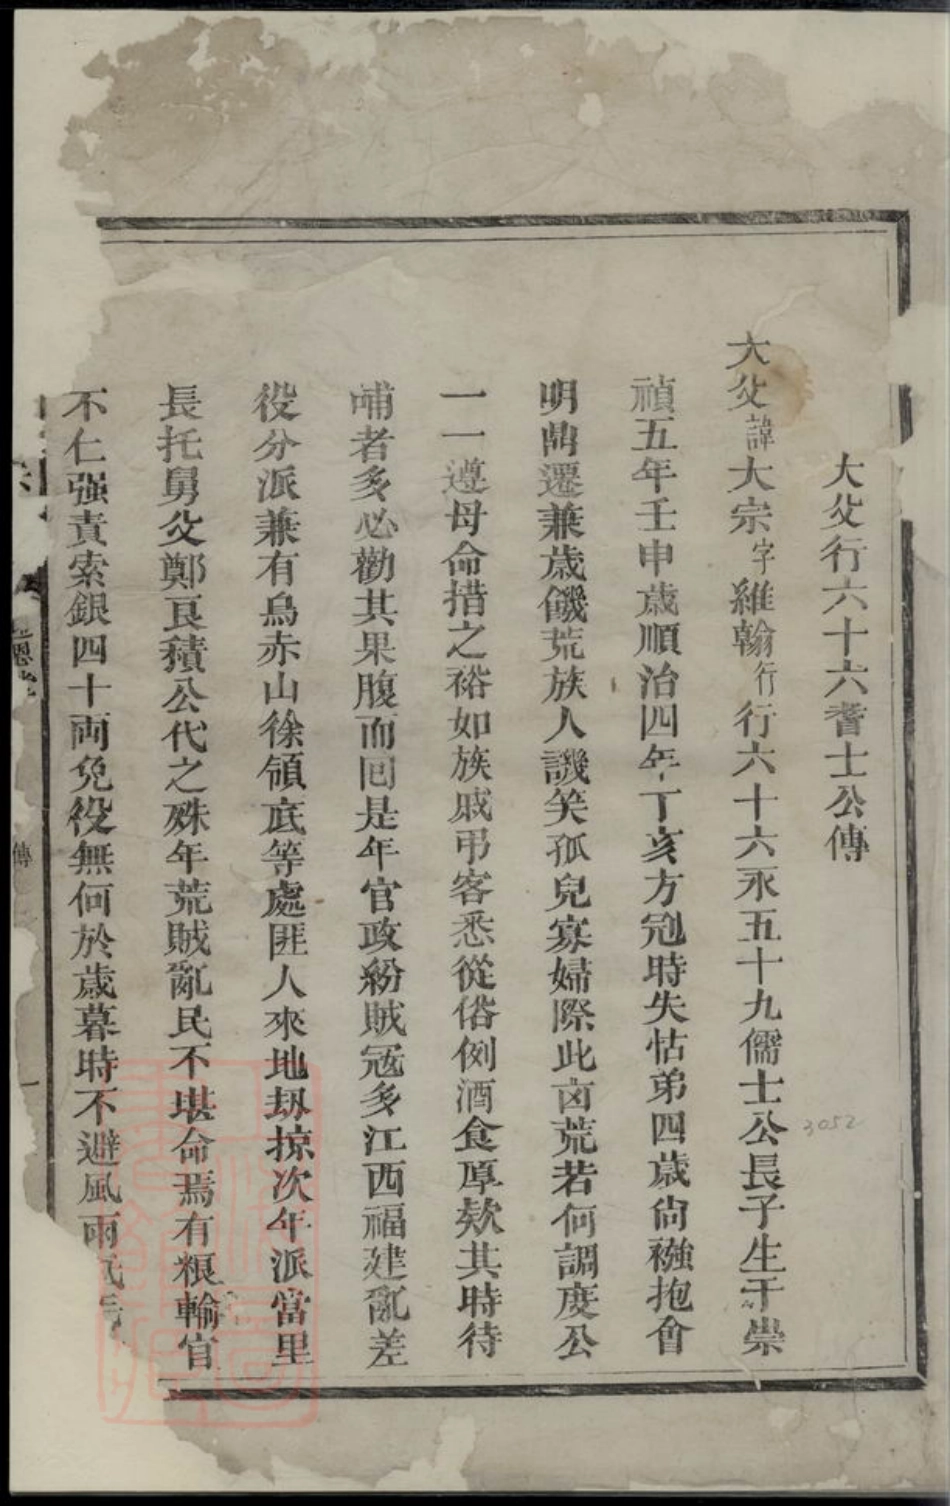 大父行六十六耆士公傳
大父諱大宗字維翰行行六十六永五十九儒士公長子生于崇
禎五年壬申歲順治四年丁亥方冠時失怙弟四歲尙襁抱會
明鼎遷兼歲饑荒族人譏笑孤兒寡婦際此凶荒若何調度公
一一遵母命措之裕如族戚弔客悉從俗例酒食厚欵其時待
哺者多必勸其果腹而回是年官政紛賊冦多江西福建亂差
役分派兼有烏赤山徐領底等處匪人來地刼掠次年派當里
長托舅父鄭良積公代之殊年荒賊亂民不堪命焉有粮輸官
不仁强責索銀四十両免役無何於歲暮時不避風雨
傳
一
3052